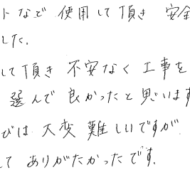 トなど 使用して頂き 安全
した.
して頂き 不安なく 工事を
選んで 良かったと思います
びは 大変 難しいですが
て ありがたかったです.